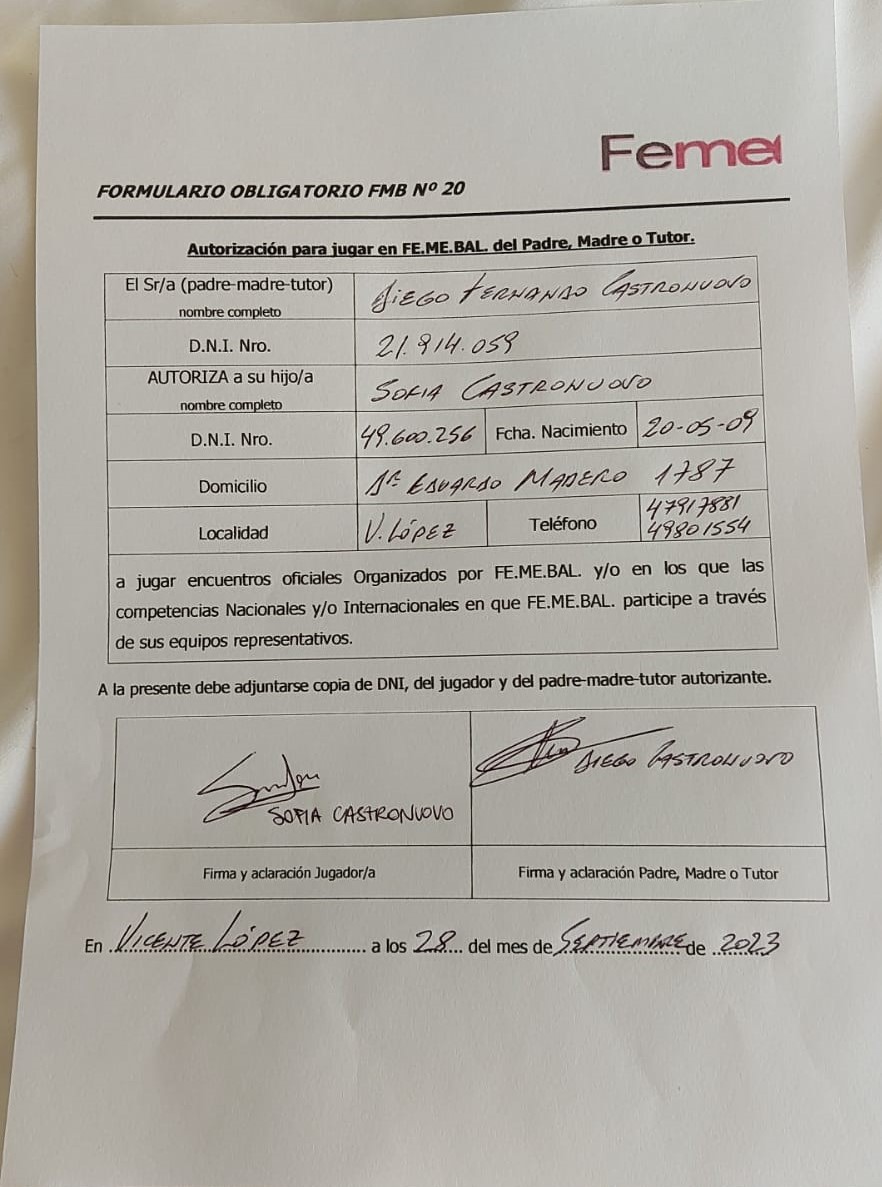 Feme
FORMULARIO OBLIGATORIO FMB Nº 20
Autorización para jugar en FE.ME.BAL. del Padre, Madre o Tutor.
El Sr/a (padre-madre-tutor) nombre completo DIEGO FERNANDO CASTRONUOVO
D.N.I. Nro. 21.914.059
AUTORIZA a su hijo/a nombre completo SOFIA CASTRONUOVO
D.N.I. Nro. 49.600.256 Fcha. Nacimiento 20-05-09
Domicilio Dr EDUARDO MADERO 1787
Localidad V. LÓPEZ Teléfono 47917881 49801554
a jugar encuentros oficiales Organizados por FE.ME.BAL. y/o en los que las
competencias Nacionales y/o Internacionales en que FE.ME.BAL. participe a través
de sus equipos representativos.
A la presente debe adjuntarse copia de DNI, del jugador y del padre-madre-tutor autorizante.
SOFIA CASTRONUOVO
DIEGO CASTRONUOVO
Firma y aclaración Jugador/a
Firma y aclaración Padre, Madre o Tutor
En VICENTE LÓPEZ a los 28 del mes de SEPTIEMBRE de 2023